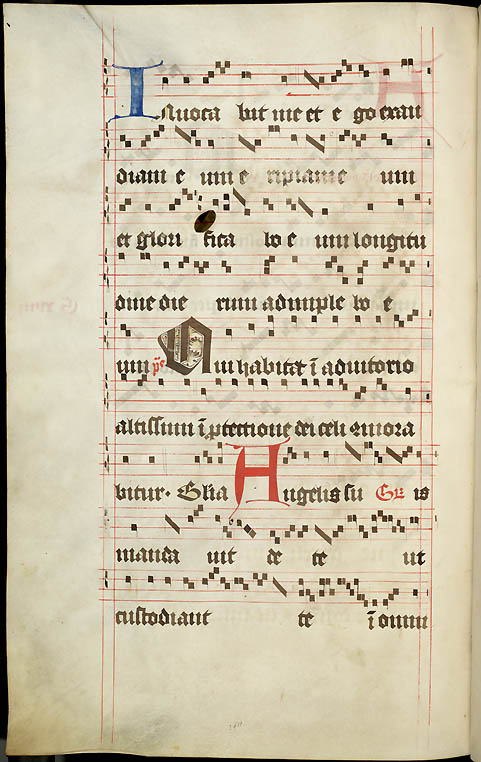 Inuoca bit me et e go exau
diam e um e ripiam e um
et glori fica bo e um longitu
dine die rum adimple bo e
um ps Qui habitat ī adiutorio
altissimi ī ptectione dei celi ꝯmora
bitur. Glia Angelis su Gr is
manda uit de te ut
custodiant te ī omni